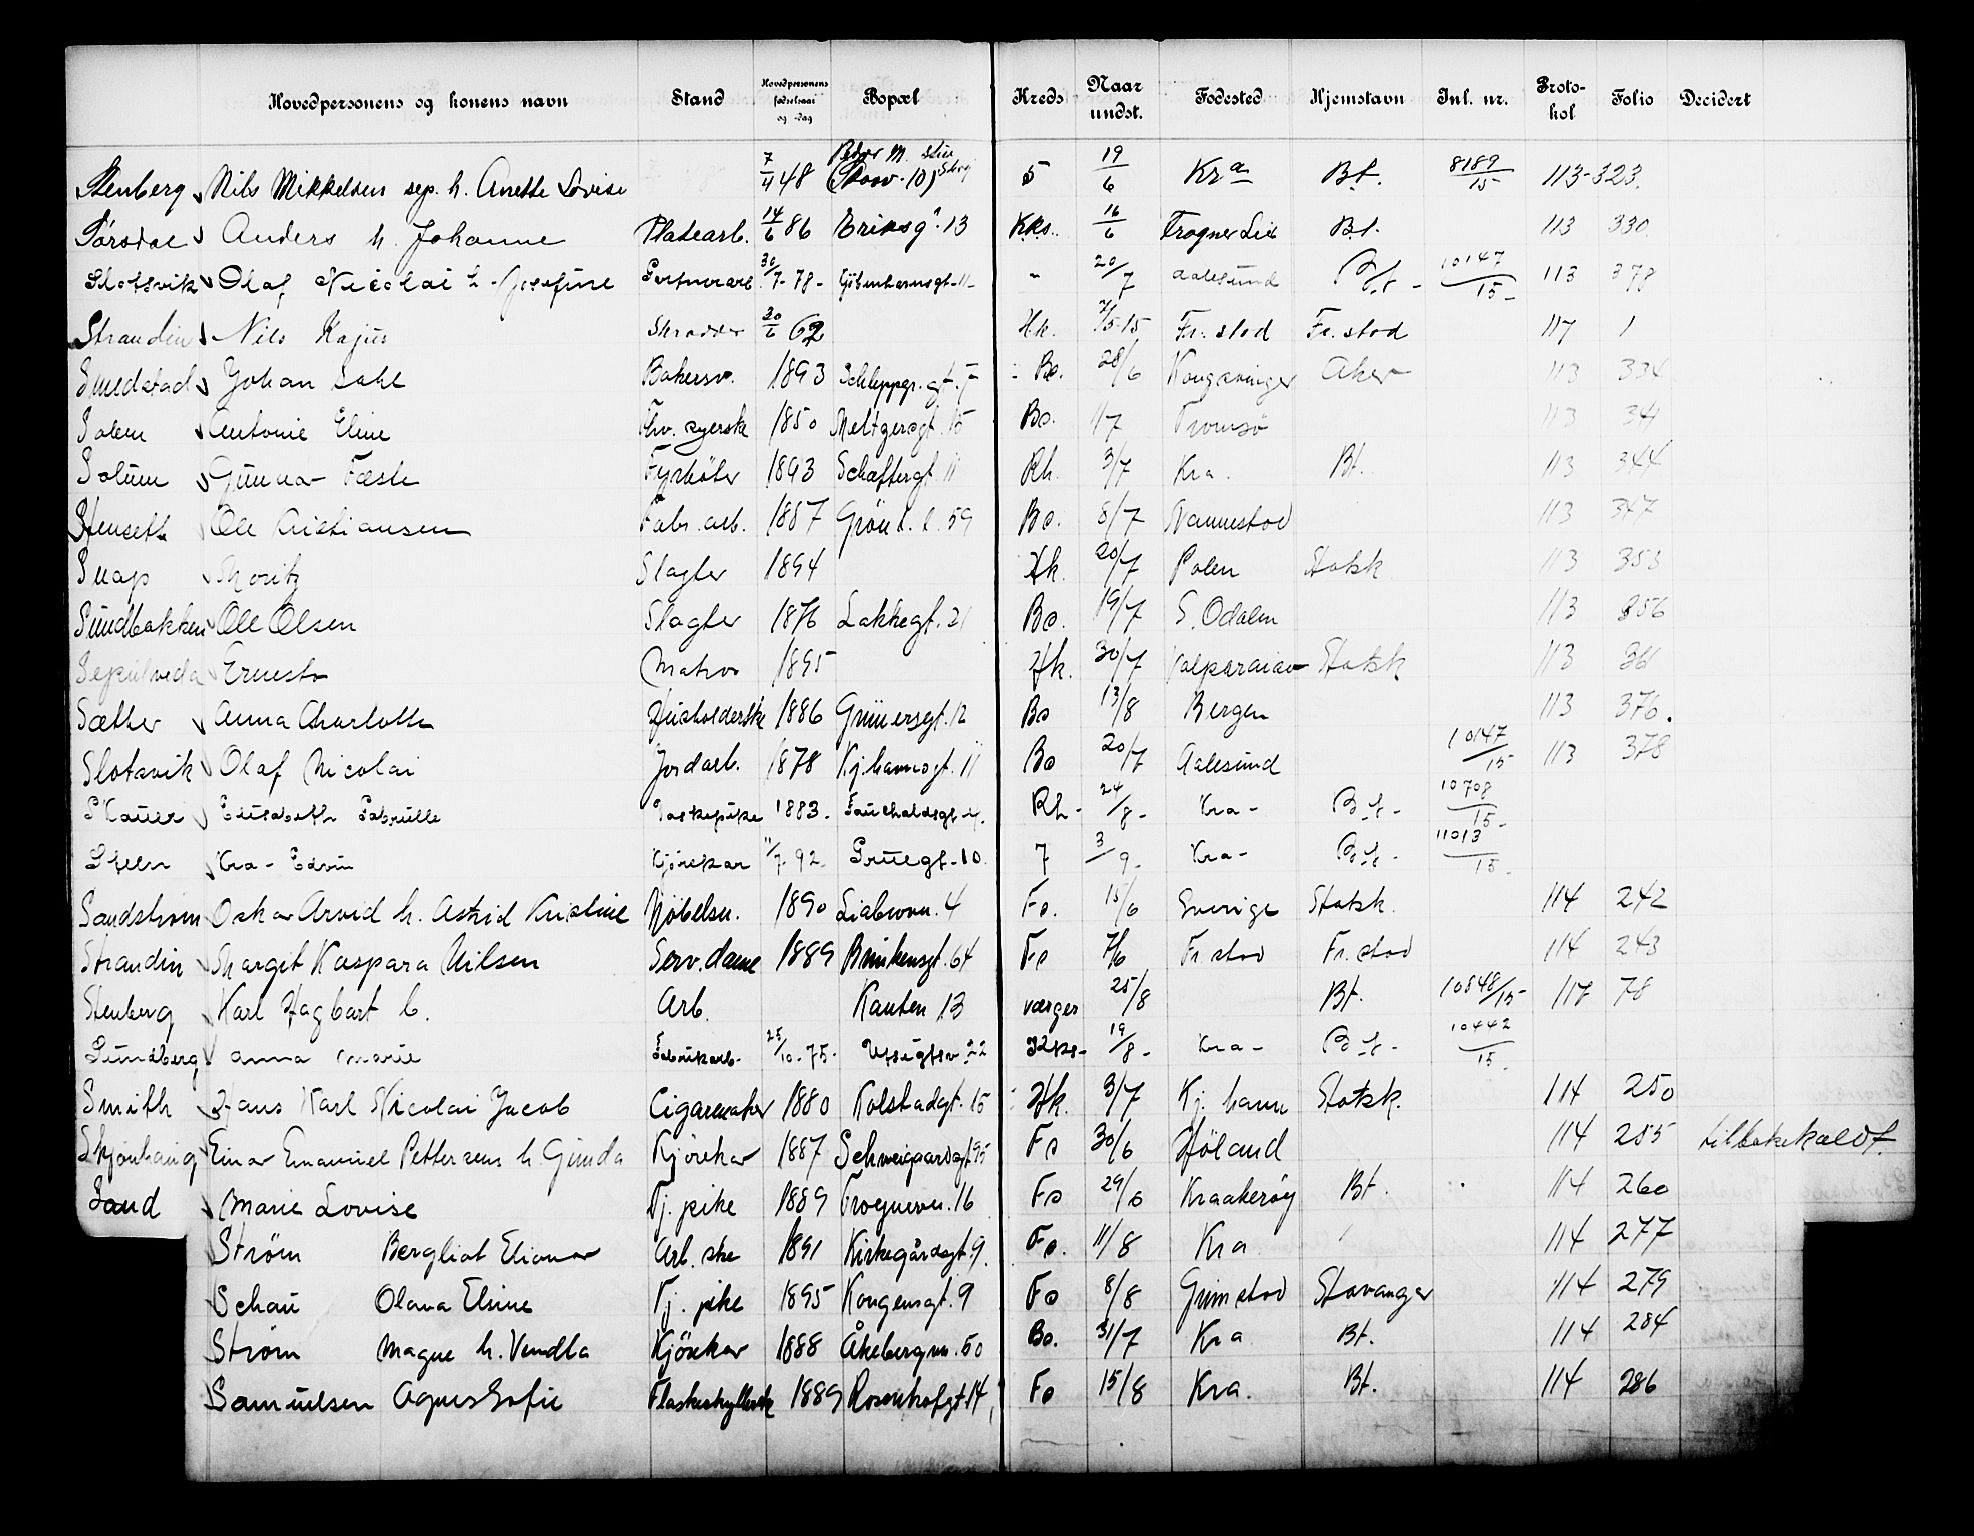 Hovedpersonens og konens navn Stand Hovedpersonens fødselsaar og -dag Bopæl Kreds Naar undst. Fødested Hjemstavn Inl. nr. Proto-kol Folio Decidert
Stenberg Nils Mikkelsen sep. h. Anette Lovise 7/4 48 5 19/6 Kra Bt. 8189/15 113-323.
Sörsdal Anders h. Johanne Pladearb. 14/6 86 Eriksg. 13 Kks. 16/6 Frogner Lier Bt. 113 330
Slotsvik Olaf Nicolai h. Josefine 30/7-78- Kjöbenhavnsgt-11- " 20/7 Aalesund Bt- 10147/15- 113 378
Strandin Nils Kajus Skrædder 30/6 62 Hk. 7/5-15 Fr.stad Fr.stad 117 1
Smedstad Johan Dahl Bakersv. 1893 Schleppgr.gt. 7 Bo. 28/6 Kongsvinger Aker 113 334
Solem Antonie Eline Thv. syerske 1850 Meltzersgt. 15 Bo. 1/7 Tromsø 113 341
Solum Gunnar Fæste Fyrböter 1893 Schæftergt. 11 Rh. 3/7 Kra. Bt. 113 344
Stenseth Ole Kristiansen Fabr. arb. 1887 Grönl. l. 59 Bo. 8/7 Nannestad 113 347
Snap Moritz Slagter 1894 Hk. 20/7 Polen Statsk 113 353
Sundbakken Ole Olsen Slagter 1876 Lakkegt. 21 Bo. 19/7 S. Odalen 113 356
Sepulveda Ernesto Matros 1895 Hk. 30/7 Valparaiso Statsk 113 361
Sætter Anna Charlotte Husholderske 1886 Grünersgt. 12 Bo 13/8 Bergen 113 376.
Slotsvik Olaf Nicolai Jordarb. 1878 Kj.havnsgt. 11 Bo 20/7 Aalesund 10147/15 113 378
Skauer Elisabeth Gabrielle Vaskepike 1883- Fauchaldsgt-4. Rh- 24/8- Kra- Bt- 10708/15-
Steen Kra- Edvin Kjörekar 11/7-92- Gruegt-10. 7 3/9- Kra- Bt- 11013/15-
Sandstrøm Oskar Arvid h. Astrid Kristine Möbelsn. 1890 Liabrovn. 4 Fo. 15/6 Sverige Statsk. 114 242
Strandin Margit Kaspara Nilsen Serv.dame 1889 Brinkensgt. 64 Fo 7/6 Fr.stad Fr.stad 114 243
Stenberg Karl Hagbart C. Arb. Kanten 13 værger 25/8 Bt. 10848/15- 117 78
Sundberg Anna Marie Fabrikarb- 25/10-75- Utsigtsv-22 Kks- 19/8- Kra- Bt- 10442/15-
Smith Hans Karl Nicolai Jacob Cigarmaker 1880 Kolstadgt. 15 Hk. 3/7 Kj.havn Statsk. 114 250
Skjønhaug Einar Emanuel Pettersens h. Gunda Kjörekar 1887 Schweigaardsgt. 95 Fo 30/6 Höland 114 255 tilbakekaldt.
Sand Marie Lovise Tj. pike 1889 Frognervn. 16 Fo 29/6 Kraakerøy Bt. 114 260
Strøm Bergliot Elionor Arb. ske 1891 Kirkegårdsgt. 9. Fo. 11/8 Kra 114 277
Schau Olava Elsine Tj. pike 1895 Kongensgt. 9 Fo 8/8 Grimstad Stavanger 114 279
Strøm Magne h. Vendla Kjörekar 1888 Åkebergvn. 50 Bo. 31/7 Kra Bt. 114 284
Samuelsen Agnes Sofie Flaskeskyllerske 1889 Rosenhofgt. 14, Fo 15/8 Kra. Bt. 114 286